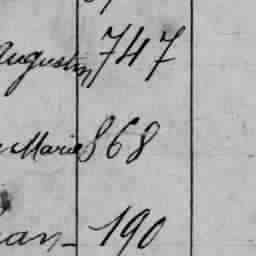 Augustin 747
Marie 868
190